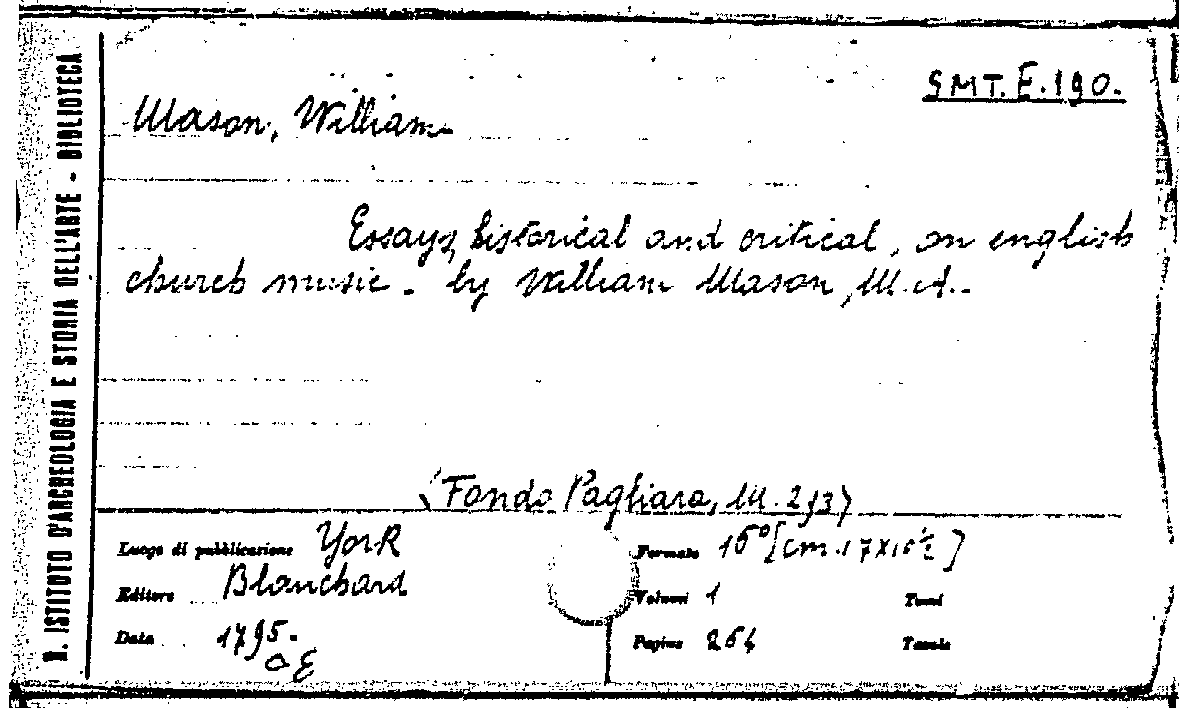 R. ISTITUTO D'ARCHEOLOGIA E STORIA DELL'ARTE - BIBLIOTECA
SMT. E. 190.
Mason, William
Essays, historical and critical, on english
church music. - by William Mason, M. A. -
(Fondo Pagliara, M. 293)
Luogo di pubblicazione York
Editore Blanchard
Data 1795.
Formato 16° [cm. 17x10½]
Volumi 1 Tomi
Pagine 264 Tavole